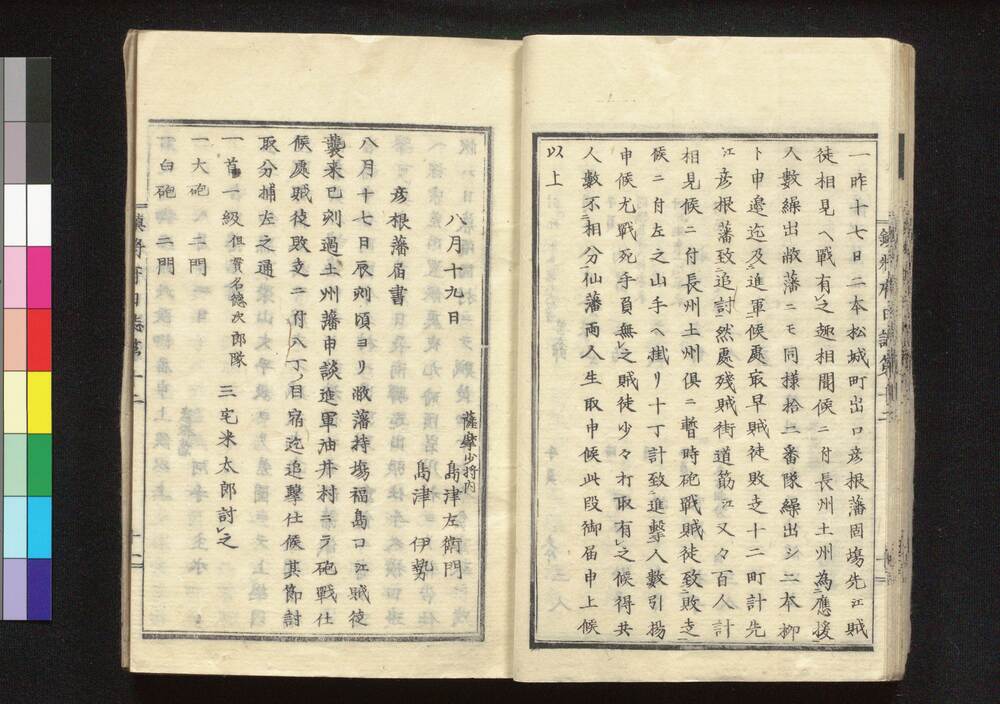 一昨十七日二本松城町出口彦根藩固場先江賊
徒相見ヘ戦有之趣相聞候ニ付長州土州為應援
人数繰出敝藩ニモ同様拾二番隊繰出シ二本柳
ト申邊迄及進軍候處最早賊徒敗走十二町計先
江彦根藩致追討然處残賊街道筋江又々百人計
相見候ニ付長州土州俱ニ暫時砲戦賊徒致敗走
候ニ付左之山手ヘ掛リ十丁計致進撃人数引揚
申候尤戦死手負無之賊徒少々打取有之候得共
人数不相分仙藩両人生取申候此段御届申上候
以上
薩摩少将内
八月十九日 島津左衛門
島津伊勢
彦根藩届書
八月十七日辰刻頃ヨリ敝藩持場福島口江賊徒
襲来巳刻過土州藩申談進軍油井村ニテ砲戦仕
候處賊徒敗走ニ付八丁ノ目宿迄追撃仕候其節討
取分捕左之通
一首一級 但貫名徳次郎隊 三宅米太郎討之
一大砲 二門
一臼砲 二門
鎮将府日誌第十二